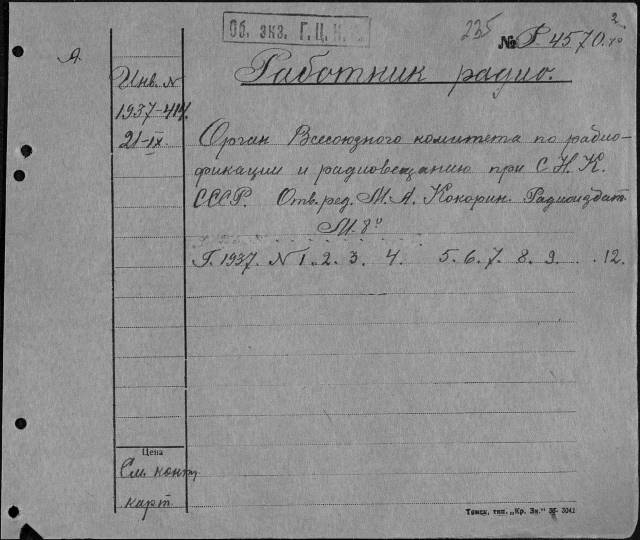 Об. экз. Г.Ц.К.
235
№ Р-4570.
Работник радио.
А.
Инв. N
1937-414.
21-IX.
Орган Всесоюзного комитета по радио-
фикации и радиовещанию при С.Н.К.
СССР. Отв. ред. М. А. Кокорин. Радиоиздат.
М. 8°
Г. 1937. N 1. 2. 3. 4. 5. 6. 7. 8. 9. . . 12.
Цена
См. контр.
карт.
Томск, тип. „Кр. Зн.“ 3042